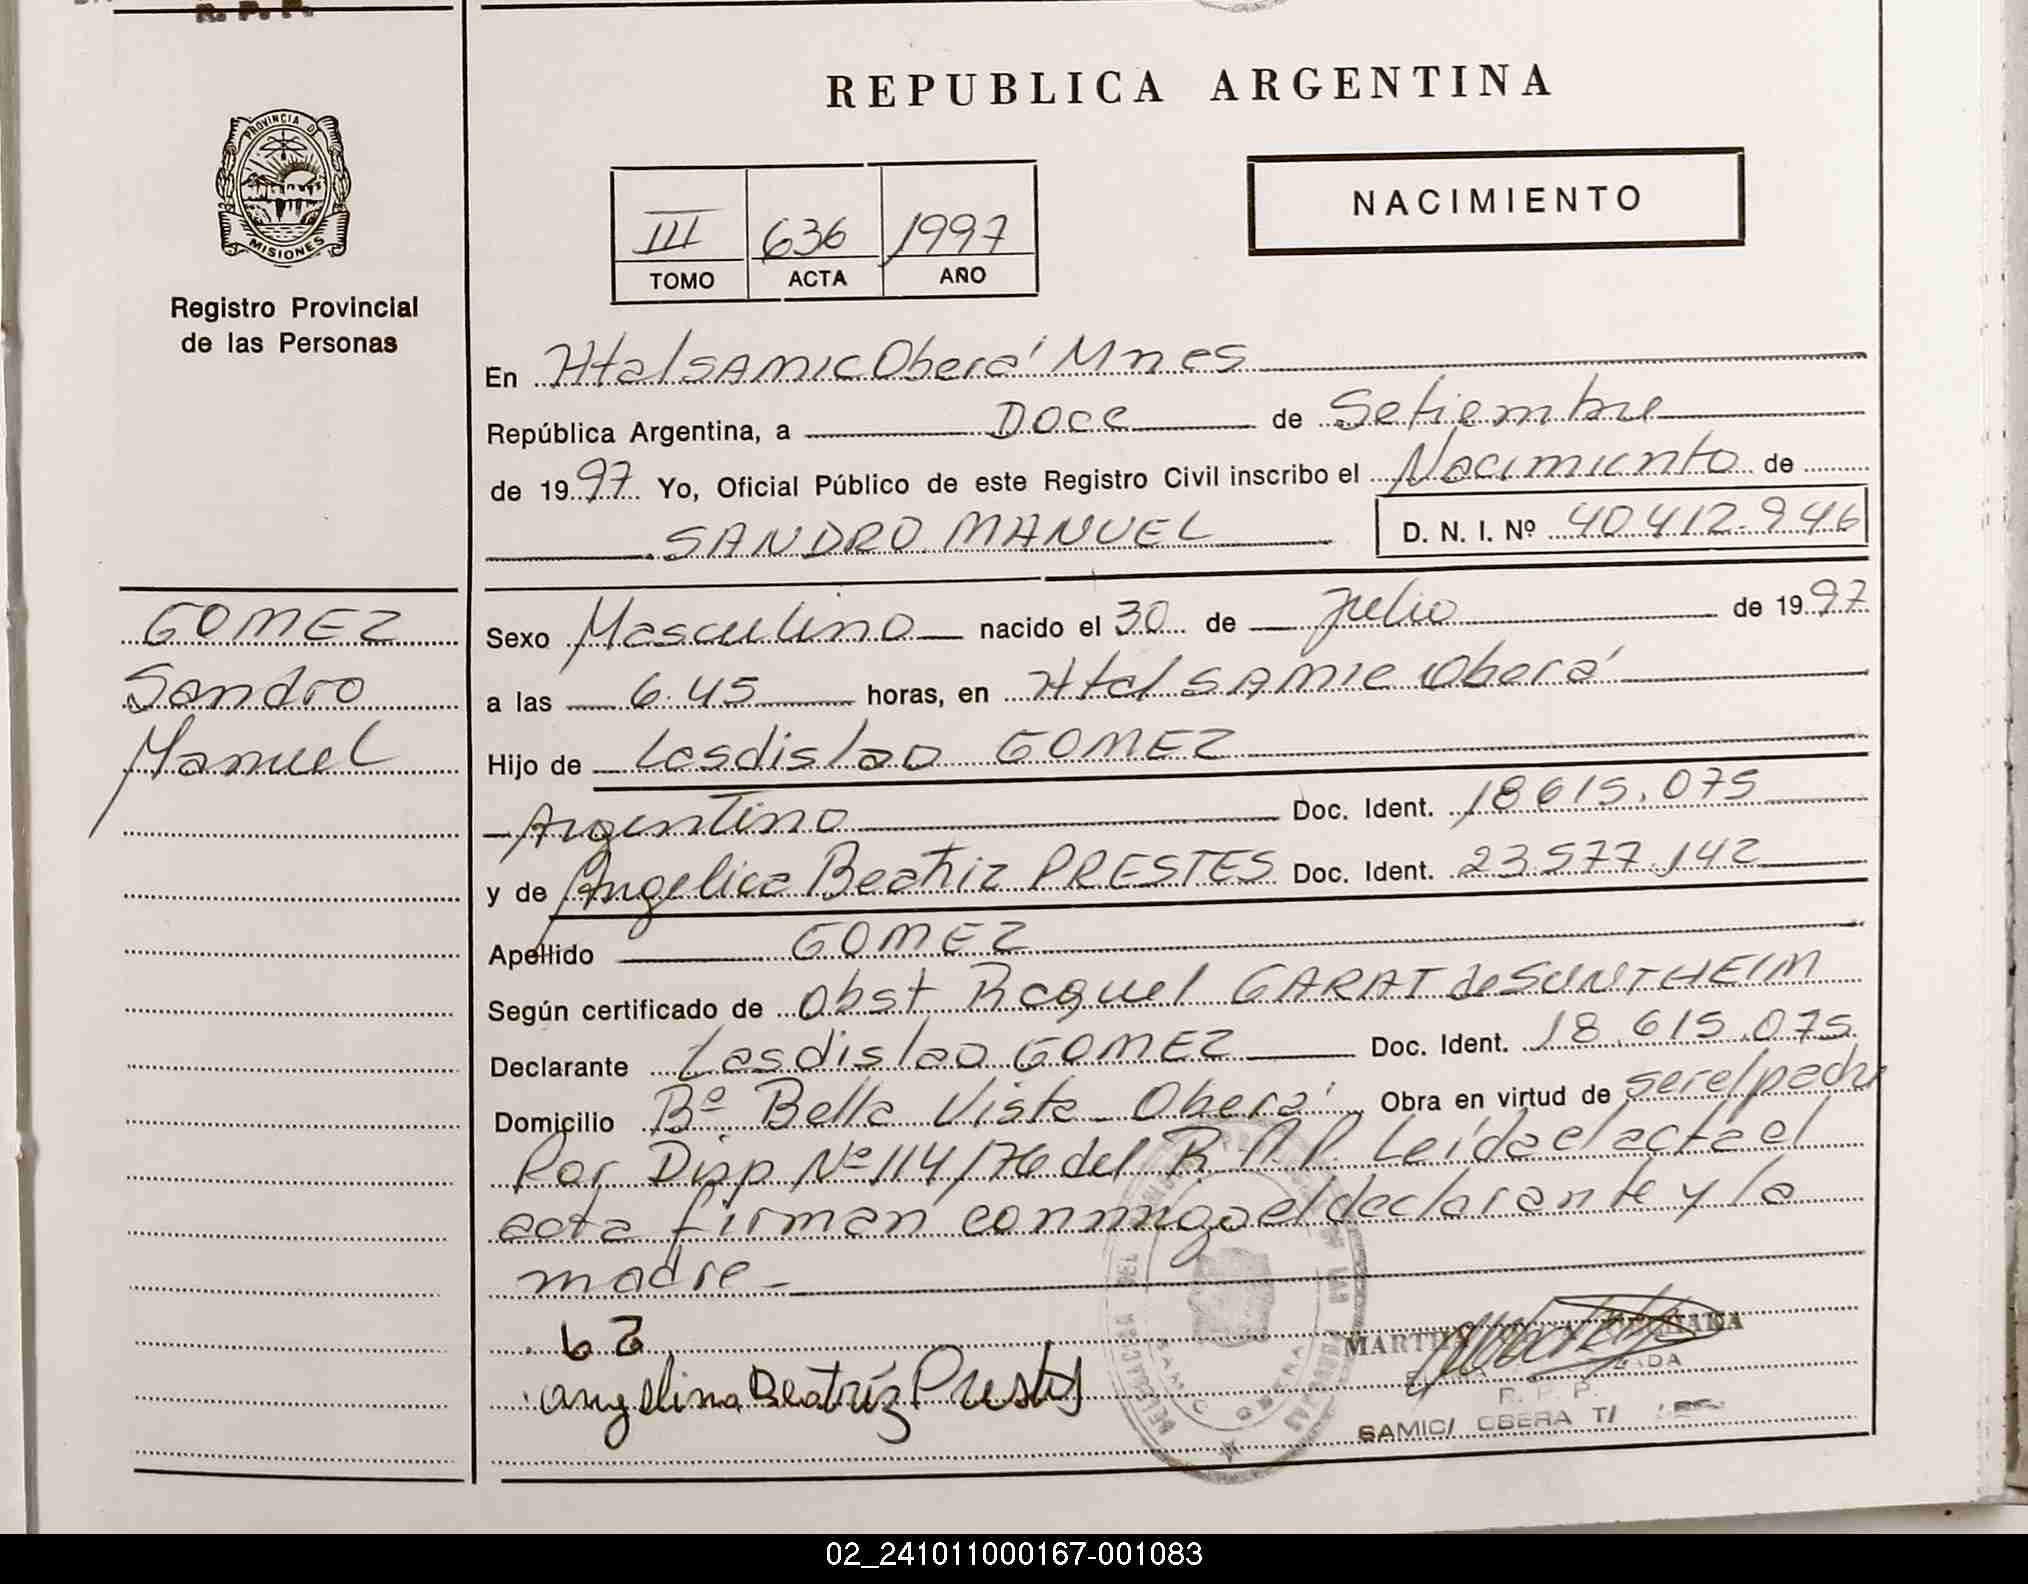 R. P. P.
REPUBLICA ARGENTINA
PROVINCIA DE
MISIONES
Registro Provincial
de las Personas
III 636 1997
TOMO ACTA AÑO
NACIMIENTO
En Htal SAMIC Oberá Mnes
República Argentina, a Doce de Setiembre
de 1997 Yo, Oficial Público de este Registro Civil inscribo el Nacimiento de
SANDRO MANUEL D. N. I. Nº 40.412.946
GOMEZ
Sandro
Manuel
Sexo Masculino nacido el 30 de Julio de 1997
a las 6.45 horas, en Htal SAMIC Oberá
Hijo de Lasdislao GOMEZ
Argentino Doc. Ident. 18.615.075
y de Angelica Beatriz PRESTES Doc. Ident. 23.577.142
Apellido GOMEZ
Según certificado de Obst Raquel GARAT de SUNTHEIM
Declarante Lasdislao GOMEZ Doc. Ident. 18.615.075
Domicilio Bº Bella Vista Oberá Obra en virtud de ser el padre
Por Disp Nº 114/76 del R.P.P. Leída el acta el
acta firman conmigo el declarante y la
madre
angelina Beatríz Prestes
R. P. P.
SAMIC/ OBERA T/
02_241011000167-001083